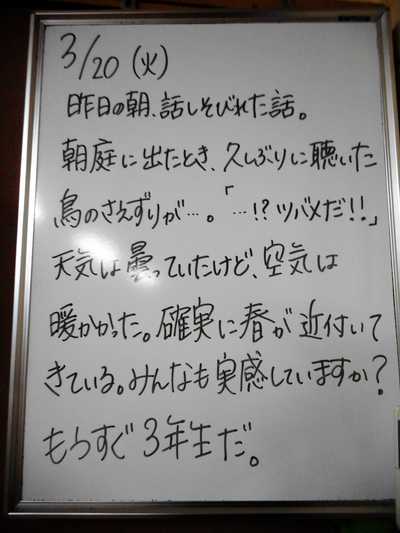 3/20（火）
昨日の朝、話しそびれた話。
朝庭に出たとき、久しぶりに聴いた
鳥のさえずりが…。「…!?ツバメだ!!」
天気は曇っていたけど、空気は
暖かかった。確実に春が近付いて
きている。みんなも実感していますか？
もうすぐ3年生だ。